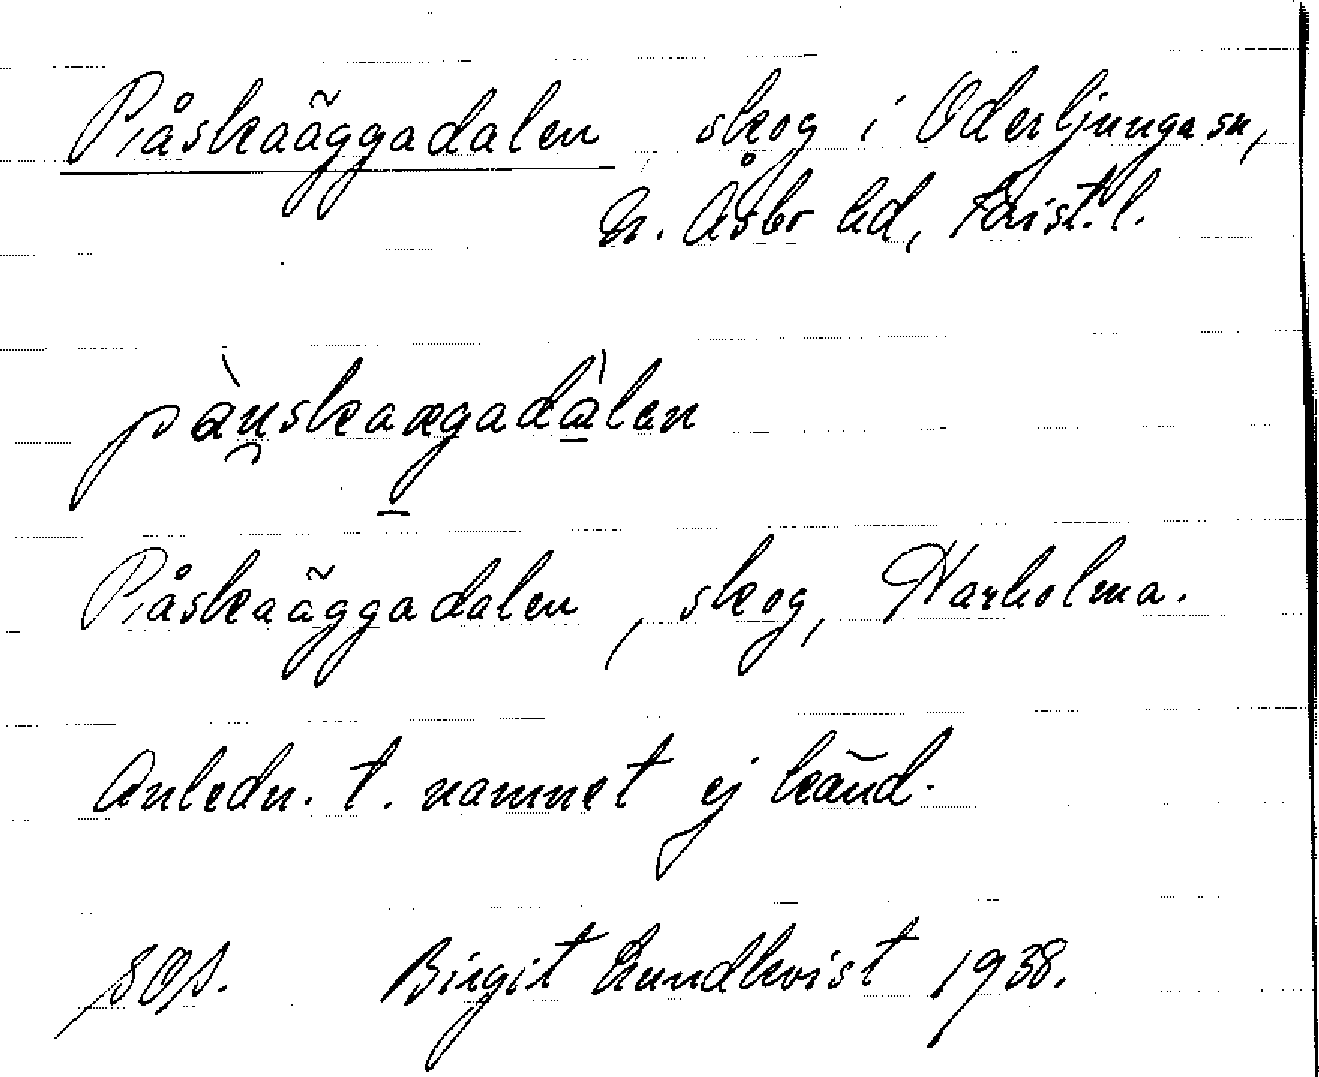 Påskaäggadalen skog i Oderljunga sn,
N. Åsbo hd, Krist. l.
Påskaäggadalen, skog, Harholma.
Anledn. t. namnet ej känd.
Birgit Lundkvist 1938.